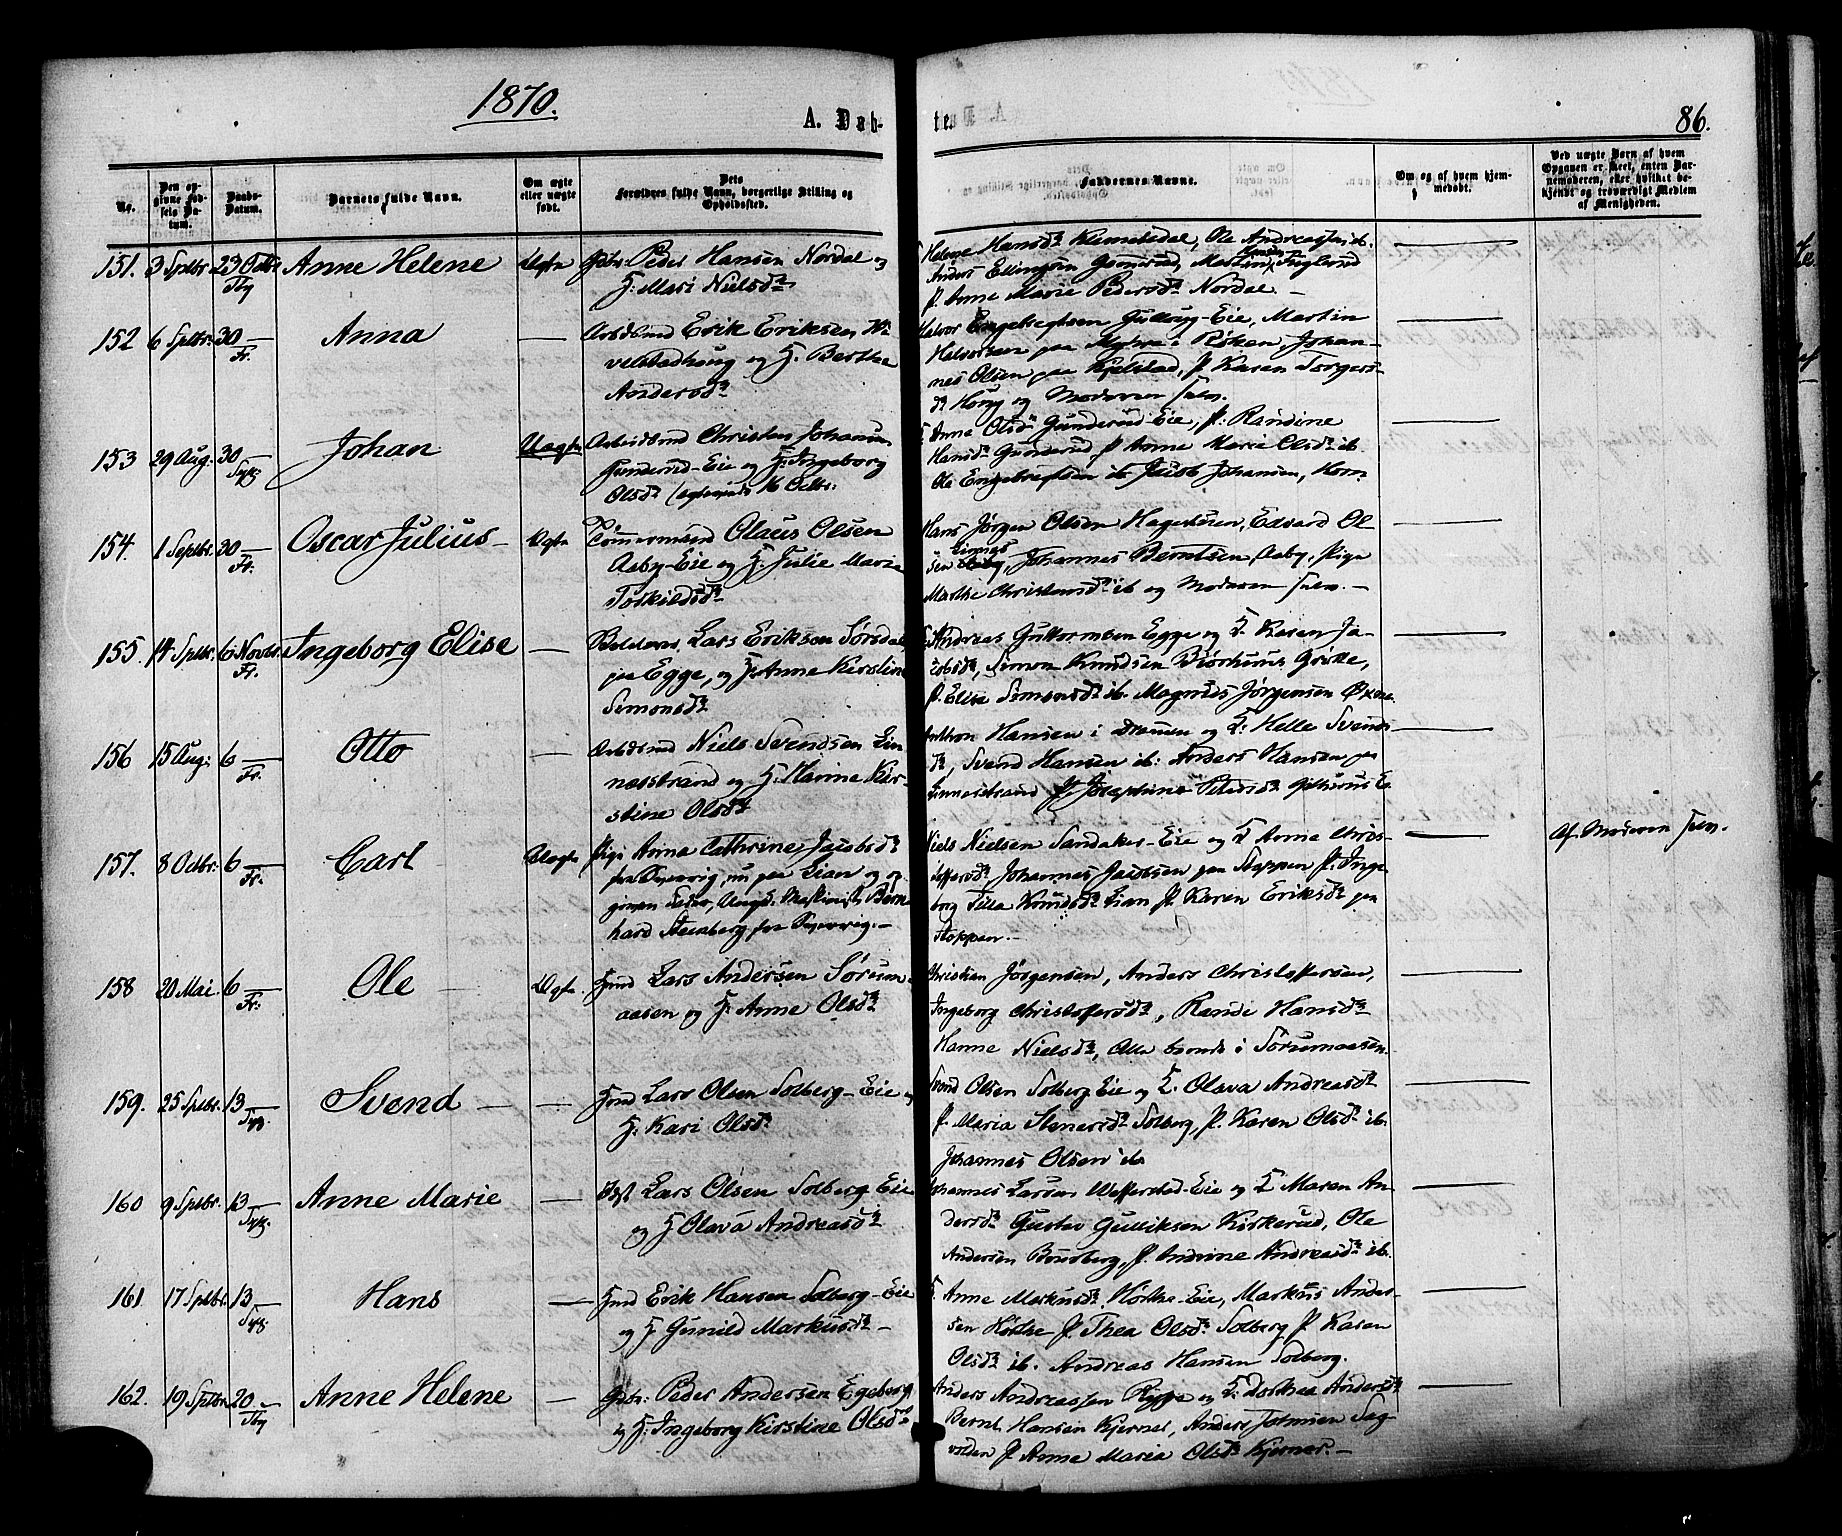 1870.
A. Dab-
te.
86.
No.
Den opgivne Fødsels Datum.
Daabs-Datum.
Barnets fulde Navn.
Om ægte eller uægte født.
Dets Forældres fulde Navn, borgerlige Stilling og Opholdssted.
Faddernes Navne.
Om og af hvem hjemmedøbt.
Ved uægte Børn af hvem Opgaven er skeet, enten Barnemoderen, eller hvilket bekjendt og troværdigt Medlem af Menigheden.
151. 3 Sptbr. 23 Octbr. Tby Anne Helene Ægte
Peder Hansen Nordal og
F: Mari Nielsdr
Helene Hansdr Klemetsdal, Ole Andreassen ib.
Anders Ellingsen Gomsrud, Martin Fuglerud
P. Anne Marie Pedersdr Nordal. —
152 6 Sptbr. 30 Fr. Anna —
Arbdsmd Erik Eriksen
og F. Berthe
Andersdr
Halvor Engebregtsen Gullaug-Eie, Martin
Halvorsen paa Myhra i Røken, Johan-
nes Olsen paa Kjelstad, P. Karen Torgers-
dr Houg og Moderen selv.
153 29 Aug. 30 Syl. Johan Uægte
Arbeidsmd Christen Johansen
Gunderud-Eie og F: Ingeborg
Olsdr
Anne Olsdr Gunderud-Eie, P. Randine
Hansdr Gunderud P Anne Marie Olsdr ib.
Ole Engebregtsen ib Jacob Johansen, Horn
154. 1 Septbr. 30 Fr. Oscar Julius — Ægte
Tømermand Olaus Olsen
Aaby-Eie og F. Julie Marie
Torkildsdr
Hans Jørgen Olsen Hagestuen, Edvard Ol
sen Linnes, Johannes Berntsen, Aaby, Pige
Marthe Christensdr ib og Moderen selv. —
155. 14 Sptbr. 6 Novbr. Fr. Ingeborg Elise —
Lars Eriksen Sørsdal
paa Egge, og F. Anne Kirstine
Simonsdr
Andreas Guttormsen Egge og F. Karen Ja-
cobsdr, Simon Knudsen Bjørhuus Grette,
P. Elise Simonsdr ib. Magnus Jørgensen Øxne
156 15 Aug: 6 Fr. Otto —
Arbdsmd Niels Svendsen Lin
næsstrand og F. Karine Kir-
stine Olsdr
Anthon Hansen i Dramen og F. Helle Svends
dr, Svend Hansen ib: Anders Hansen paa
Linnesstrand P. Josephine
157. 8 Octbr. 6 Fr. Carl Uægte
Pige Anna Cathrine Jacobsdr
fra Sverrig, nu paa Lian og op-
given Fader, Ungk: Maskinist Bern
hard Steenberg fra Sverrig. —
Niels Nielsen Sandaker-Eie og F Anne Chris-
toffersdr, Johannes Jacobsen paa Stoppen P. Inge
borg Lian P. Karen Eriksdr paa
Stoppen. —
Af Moderen selv.
158 20 Mai. 6 Fr. Ole — Ægte.
Hmd Lars Andersen Sørum-
aasen og F. Anne Olsdr
Christian Jørgensen, Anders Christoffersen,
Ingeborg Christoffersdr, Randi Hansdr
Hanne Nielsdr, Alle boende i Sørumaasen.
159. 25 Sptbr. 13 Syl. Svend — —
Hmd Lars Olsen Solberg-Eie og
F. Kari Olsdr
Svend Olsen Solberg Eie og F. Olava Andreasdr
P. Maria Stenersdr Solberg, P. Karen Olsdr ib.
Johannes Olsen ib
160 9 Sptbr. 13 Syl. Anne Marie —
Lars Olsen Solberg Eie
og F Olava Andreasdr
Johannes Larsen Wefferstad-Eie og F Maren An
dersdr Gustav Gulliksen Kirkerud, Ole
Andersen P. Andrine Andreasdr ib.
161. 17 Sptbr. 13 Syl. Hans —
Hmd Erik Hansen Solberg-Eie
og F Gunild Markusdr —
F. Anne Markusdr. Hørthe-Eie, Markus Ander-
sen Hørthe P. Thea Olsdr Solberg P. Karen
Olsdr ib. Andreas Hansen Solberg.
162. 19 Sptbr. 20 Tby Anne Helene —
Gbr: Peder Andersen Egeberg
og F. Ingeborg Kirstine Olsdr
Anders Andreassen Rygge og F: Dorthea Andersdr
Bernt Hansen Kjernes, Anders Johnsen Sag
volden P. Anne Maria Olsdr Kjernes. —